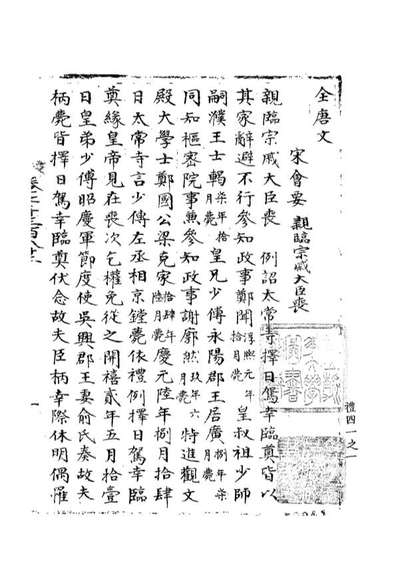 全唐文
宋會要 親臨宗戚大臣喪
親臨宗戚大臣喪 例詔太常寺擇日駕幸臨奠皆以
其家辭避不行參知政事鄭聞淳熙元年拾月薨皇叔祖少師
嗣濮王士輵柒年拾月薨皇兄少傅永陽郡王居廣捌年柒月薨
同知樞密院事兼參知政事謝廓然玖年六月薨特進觀文
殿大學士鄭國公梁克家拾肆年陸月薨慶元陸年捌月拾肆
日太常寺言少傅左丞相京鏜薨依禮例擇日駕幸臨
奠緣皇帝見在喪次乞權免從之開禧貳年五月拾壹
日皇弟少傅昭慶軍節度使吳興郡王妻俞氏奏故夫
柄薨皆擇日駕幸臨奠伏念故夫臣柄幸際休明偶罹
禮四一之一
一